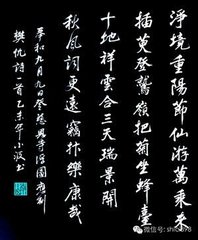 淨境重陽節仙游萬乘来
插萸登鷲嶺把菊坐蜂臺
十地祥雲合三天瑞景開
秋風詞更遠竊抃樂康哉
奉和九月九日登慈恩寺浮圖應制
樊忱詩一首乙未年小波書
微信号: shici978